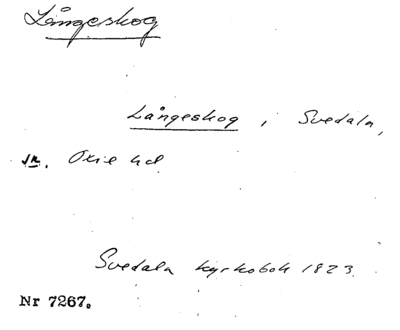 Långeskog
Långeskog, Svedala,
sk. Oxie hd
Svedala kyrkobok 1823.
Nr 7267.